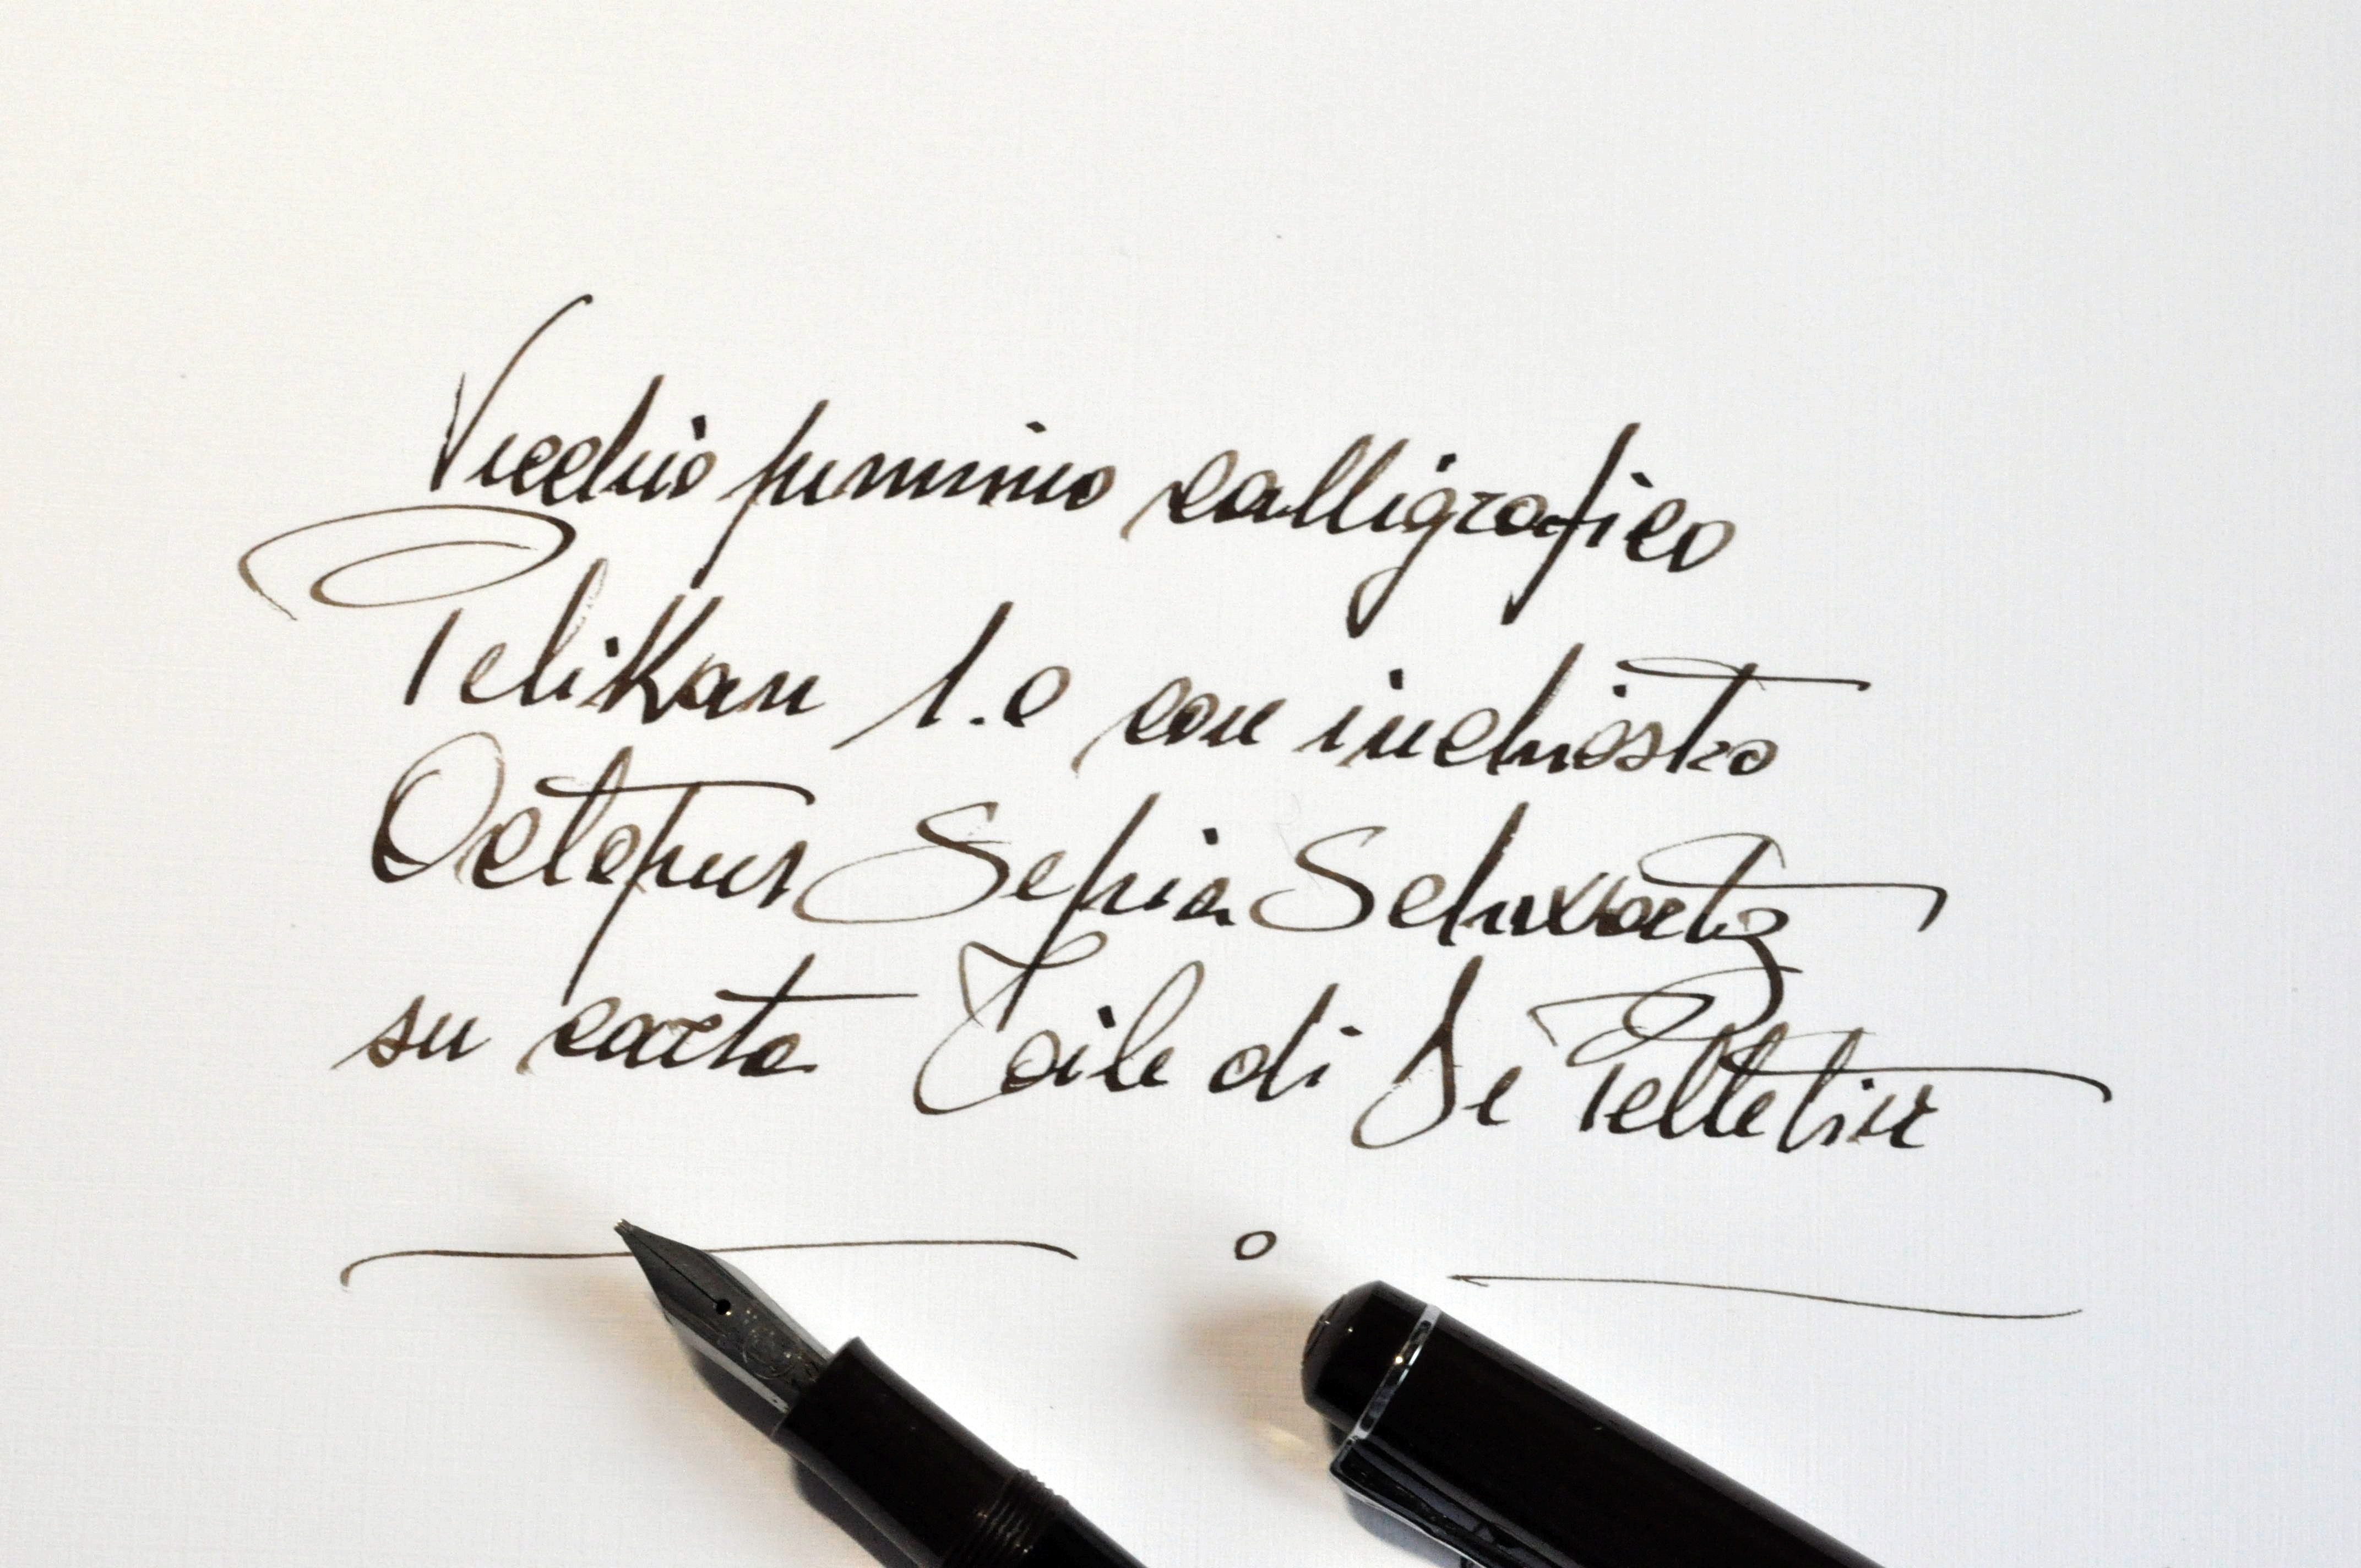 Vecchio pennino calligrafico
Pelikan 1.0 con inchiostro
Octopus Sepia Schwartz
su carta Toile di Le Pelletier